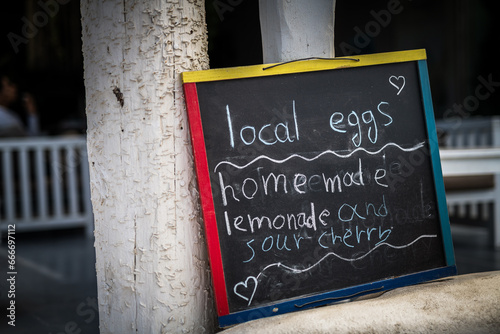 local eggs
homemade
lemonade and
sour cherry
Adobe Stock | #666697112